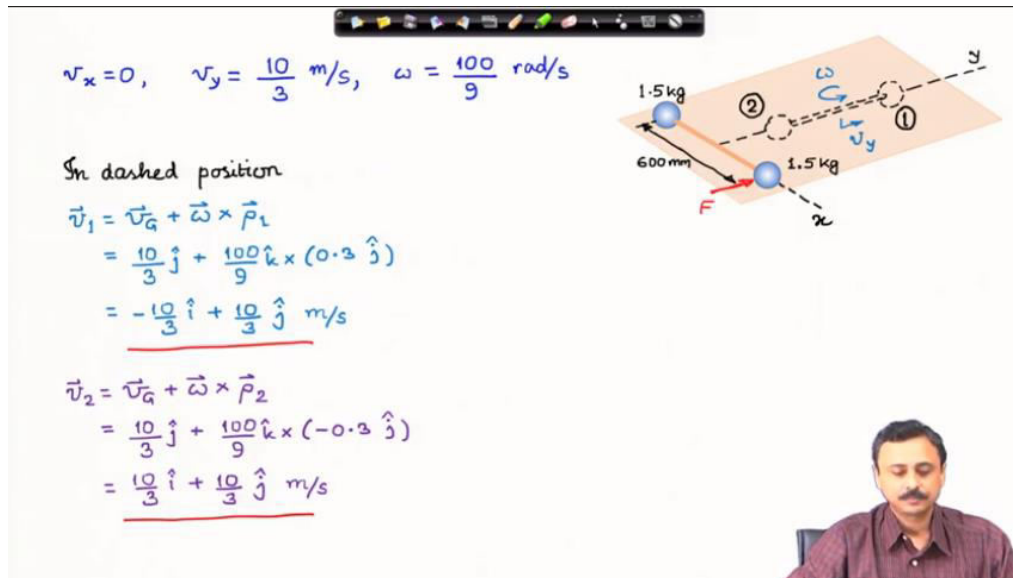 vₓ = 0, v_y = 10/3 m/s, ω = 100/9 rad/s
In dashed position
v⃗₁ = v⃗_G + ω⃗ × ρ⃗₁
= 10/3 ĵ + 100/9 k̂ × (0.3 ĵ)
= -10/3 î + 10/3 ĵ m/s
v⃗₂ = v⃗_G + ω⃗ × ρ⃗₂
= 10/3 ĵ + 100/9 k̂ × (-0.3 ĵ)
= 10/3 î + 10/3 ĵ m/s
y
ω
1.5 kg
②
①
v_y
600 mm
1.5 kg
F
x